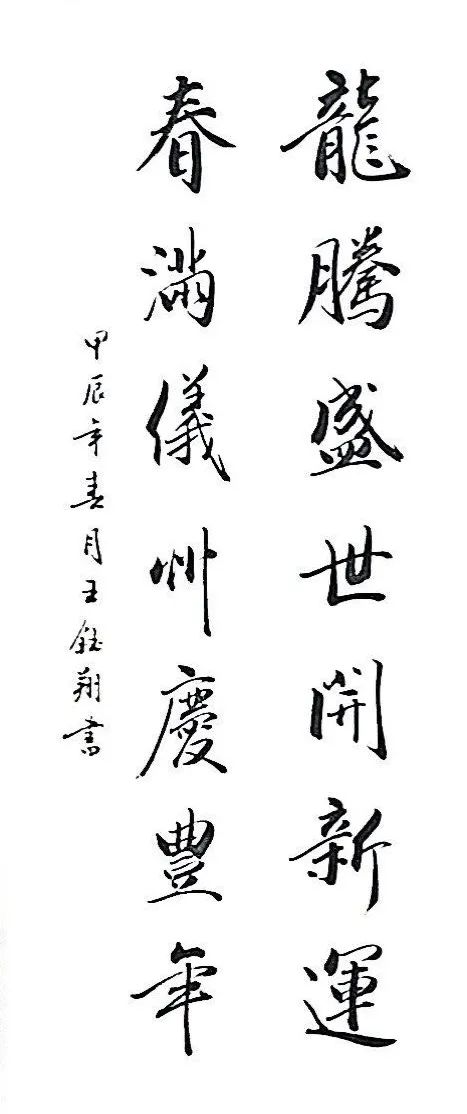 龍騰盛世開新運
春滿儀州慶豐年
甲辰年春月王鈺翔書